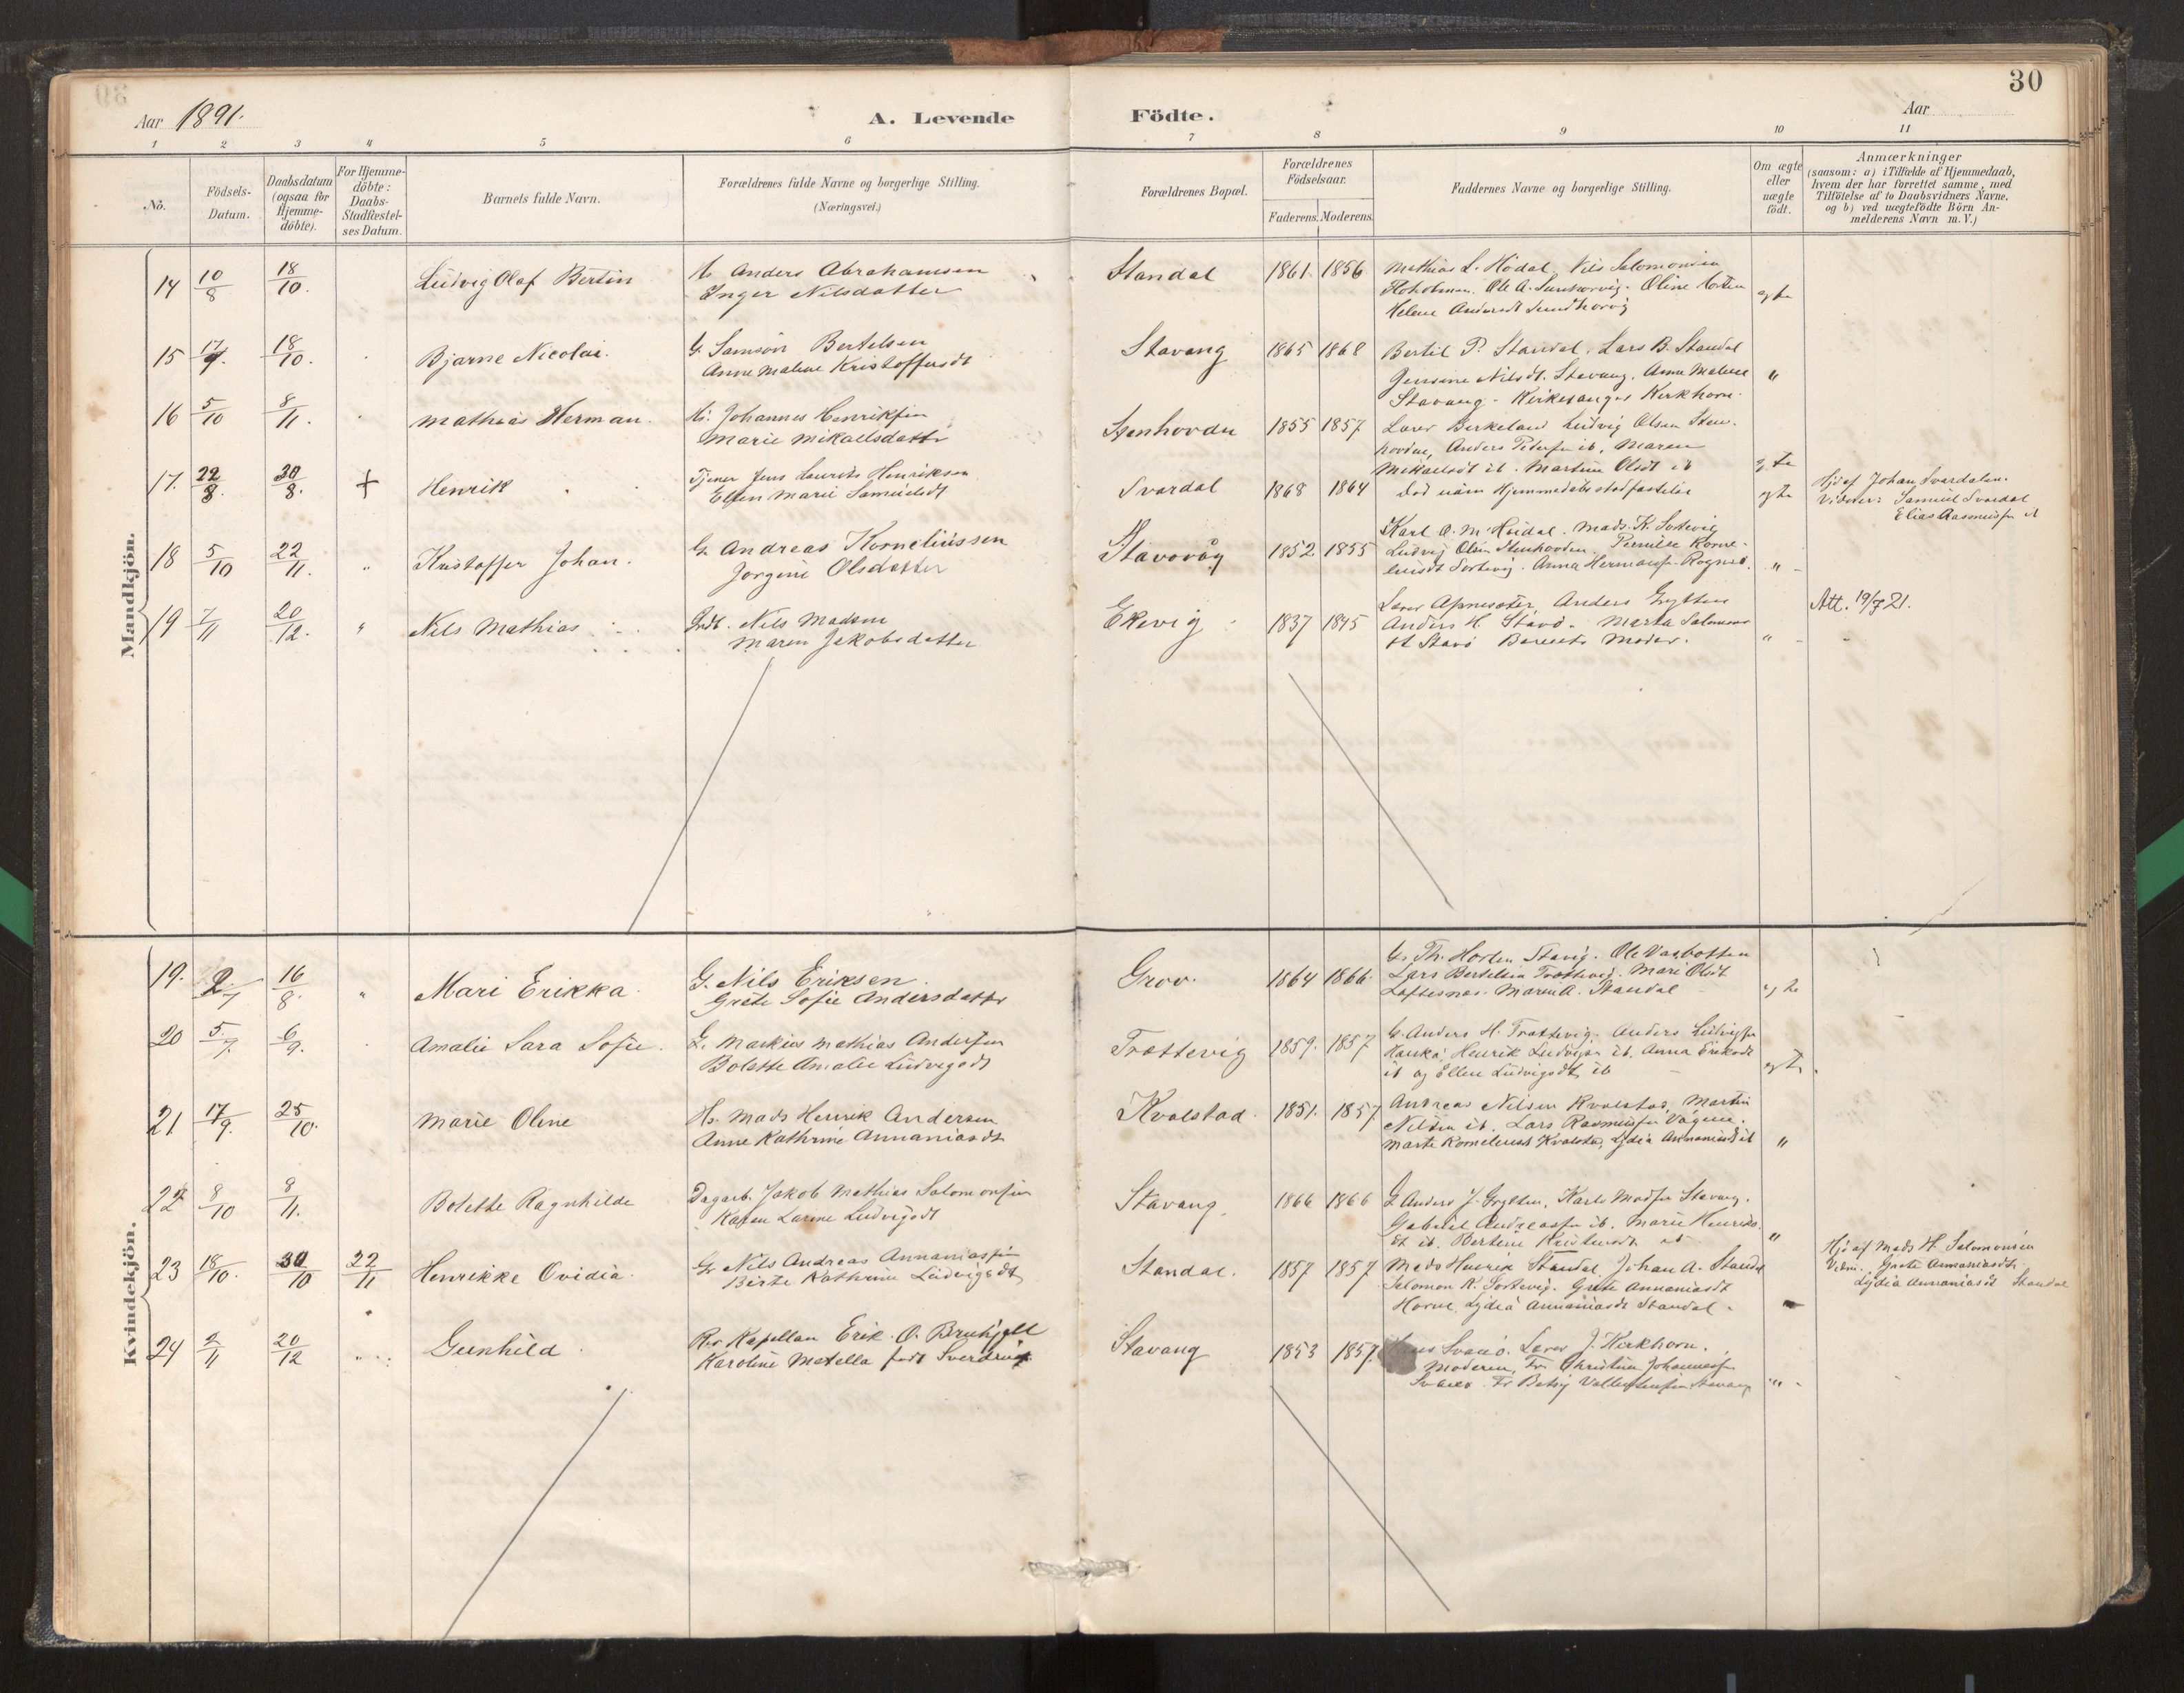 30
Aar 1891.
A. Levende
Födte.
Aar
1 2 3 4 5 6 7 8 9 10 11
No.
Födsels-
Datum.
Daabsdatum
(ogsaa for
Hjemme-
döbte).
For Hjemme-
döbte:
Daabs-
Stadfæstel-
ses Datum.
Barnets fulde Navn.
Forældrenes fulde Navne og borgerlige Stilling.
(Næringsvei.)
Forældrenes Bopæl.
Forældrenes
Födselsaar.
Faderens. Moderens.
Faddernes Navne og borgerlige Stilling.
Om ægte
eller
uægte
födt.
Anmærkninger
(saasom: a) i Tilfælde af Hjemmedaab,
hvem der har forrettet samme, med
Tilföielse af to Daabsvidners Navne,
og b) ved uægtefödte Börn An-
melderens Navn m. V.)
Mandkjön.
14 10/8 18/10. Ludvig Olaf Bertin
Hr Anders Abrahamsen
Inger Nilsdatter
Standal 1861. 1856
Mathias L. Hödal, Nils Salomonsen
Ole A. Oline Horten
Helene Andersdt Sundhorvig
egte
15 17/9 18/10. Bjarne Nicolai.
G. Samson Bertelsen
Anne Malene Kristoffersdt
Stavang 1865 1868
Bertil P. Standal. Lars B. Standal
Jensine Nilsdt. Stavang. Anne Malene
Stavang - Kirkesanger Kirkhorn.
"
16 5/10 8/11. Mathias Herman.
Hr. Johannes Henriksen
Marie Mikaelsdatter
Stenhovden 1855 1857
Lærer Birkeland Ludvig Olsen Sten-
hovden, Anders Petersen ib. Maren
Mikaelsdt ib. Martine Olsdt ib
egte
17. 22/8. 30/8. + Henrik
Tjener Jens Laurits Henriksen
Ellen Marie Samuelsdt
Svardal 1868 1864
Död uden Hjemmedaabs stadfæstelse
egte
Hjd af Johan Svardalen.
Vidner: Samuel Svardal
Elias Rasmussen ib
18 5/10 22/11. " Kristoffer Johan.
G. Andreas Korneliussen
Jorgine Olsdatter
Stavøvåg 1852 1855
Karl A. M. Høidal. Mads K. Sortevig
Ludvig Olsen Stenhovden. Pernille Korne-
liusdt Sortevig. Anna Hermansen Rognes.
"
19 7/11 20/12. " Nils Mathias
Grdb. Nils Madsen
Maren Jakobsdatter
Ekevig 1837 1845
Lærer Apneseter, Anders Grytten
Anders H. Stavö. Marta Salomons
dt Stavö Barnets Moder.
"
Att. 19/7 21.
Kvindekjön.
19. 2/7 16/8. " Mari Erikka
G. Nils Eriksen
Grete Sofie Andersdatter
Grov. 1864 1866
G. Th. Horten Stavig. Ole Vasbotten
Lars Bertelsen Trættevig. Mari Olsdt
Loftesnes. Maren A. Standal
egte
20 5/7. 6/9. Amalie Sara Sofie.
G. Markius Mathias Andersen
Bolette Amalie Ludvigsdt
Trættevig 1859. 1857
G. Anders H. Trættevig. Anders Ludvigsen
Henrik Ludvigsen ib. Anna Eriksdt
ib og Ellen Ludvigsdt ib
egte
21 17/9. 25/10. Marie Oline
Hr. Mads Henrik Andersen
Anne Kathrine Annaniasdt
Kvalstad 1851. 1857
Andreas Nilsen Kvalstad, Martin
Nilsen ib. Lars Rasmussen Vågene.
Marte Korneliusdt Kvalstad, Lydia Annaniasdt ib
"
22 8/10 8/11. Bolette Ragnhilde
Dagarb. Jakob Mathias Salomonsen
Karen Larine Ludvigsdt
Stavang. 1866 1866
G. Anders J. Grytten, Karl Madsen Stavang.
Gabriel Andreassen ib. Marie Henriks-
dt ib. Bertine Kristensdt ib
"
23 18/10. 30/10 22/11 Henrikke Ovidia.
Gr Nils Andreas Annaniassen
Birte Kathrine Ludvigsdt
Standal. 1857 1857
Mads Henrik Standal, Johan A. Standal
Salomon K. Sortevig. Grete Annaniasdt
Horne, Lydia Annaniasdt Standal.
Hjd af Mads H. Salomonsen
Vidn. Grete Annaniasdt
Lydia Annaniasdt Standal
24 2/11 20/12 " Gunhild
Res Kapellan Erik. O. Bruhjell
Karoline Metella født Sverdrup
Stavang 1853 1857.
Svanö. Lærer J. Kirkhorn.
Moderen, Fr. Christine Johannessen
Svanö. Fr Betsy Vollestensen Stavang
"